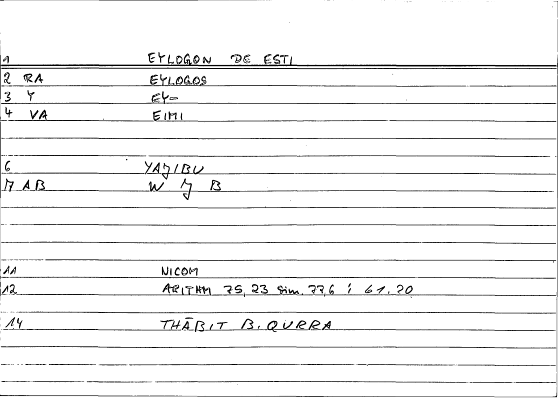 1 EYLOGON DE ESTI
2 RA EYLOGOS
3 Y EY=
4 VA EIMI
6 YAJIBU
7 AB W J B
11 NICOM
12 ARITHM 75,23 sim. 77,6 ; 61.20
14 THĀBIT B. QURRA